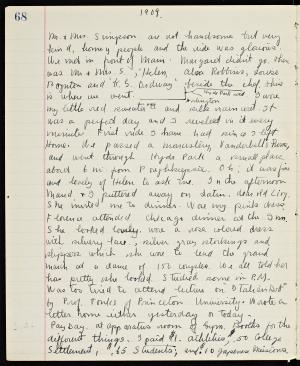 68
1909.
Mr & Mrs Simpson are not handsome but very
kind, homey people and the ride was glorious.
We met in front of Main. Margaret didn't go, then
was Mr & Mrs S., Helen, also Robbins, Louise
Boynton and K. G. beside the chef, this
is where we went. Hyde Park and
my little red sweater and
was a perfect day and I reveled in it every
minute. First ride I have had since I left
Home. We passed a Vanderbilt's
and went through Hyde Park a small place
about 6 mi from Poughkeepsie. Oh, it was fine
and lovely of Helen to ask me. In the afternoon
Maud & I away on Latin. Made it
She invited me to dinner. Wore my pink dress
Florence attended Chicago dinner at the Inn.
She looked lovely. wore a rose colored dress
with silvery lace, silver gray stockings and
slippers which she wore to lead the grand
march at a dance of 150 couples. We all told her
how pretty she looked. Studied some in P.M.
Was too tired to attend lecture on
by Prof. of Princeton University. Wrote a
letter home either yesterday or today.
Pay Day. at apparatus room of Gym. Booths for the
different things. I paid $1. athletics, .50 College
Settlement, $.65 Students', and .10 Japanese Missions.